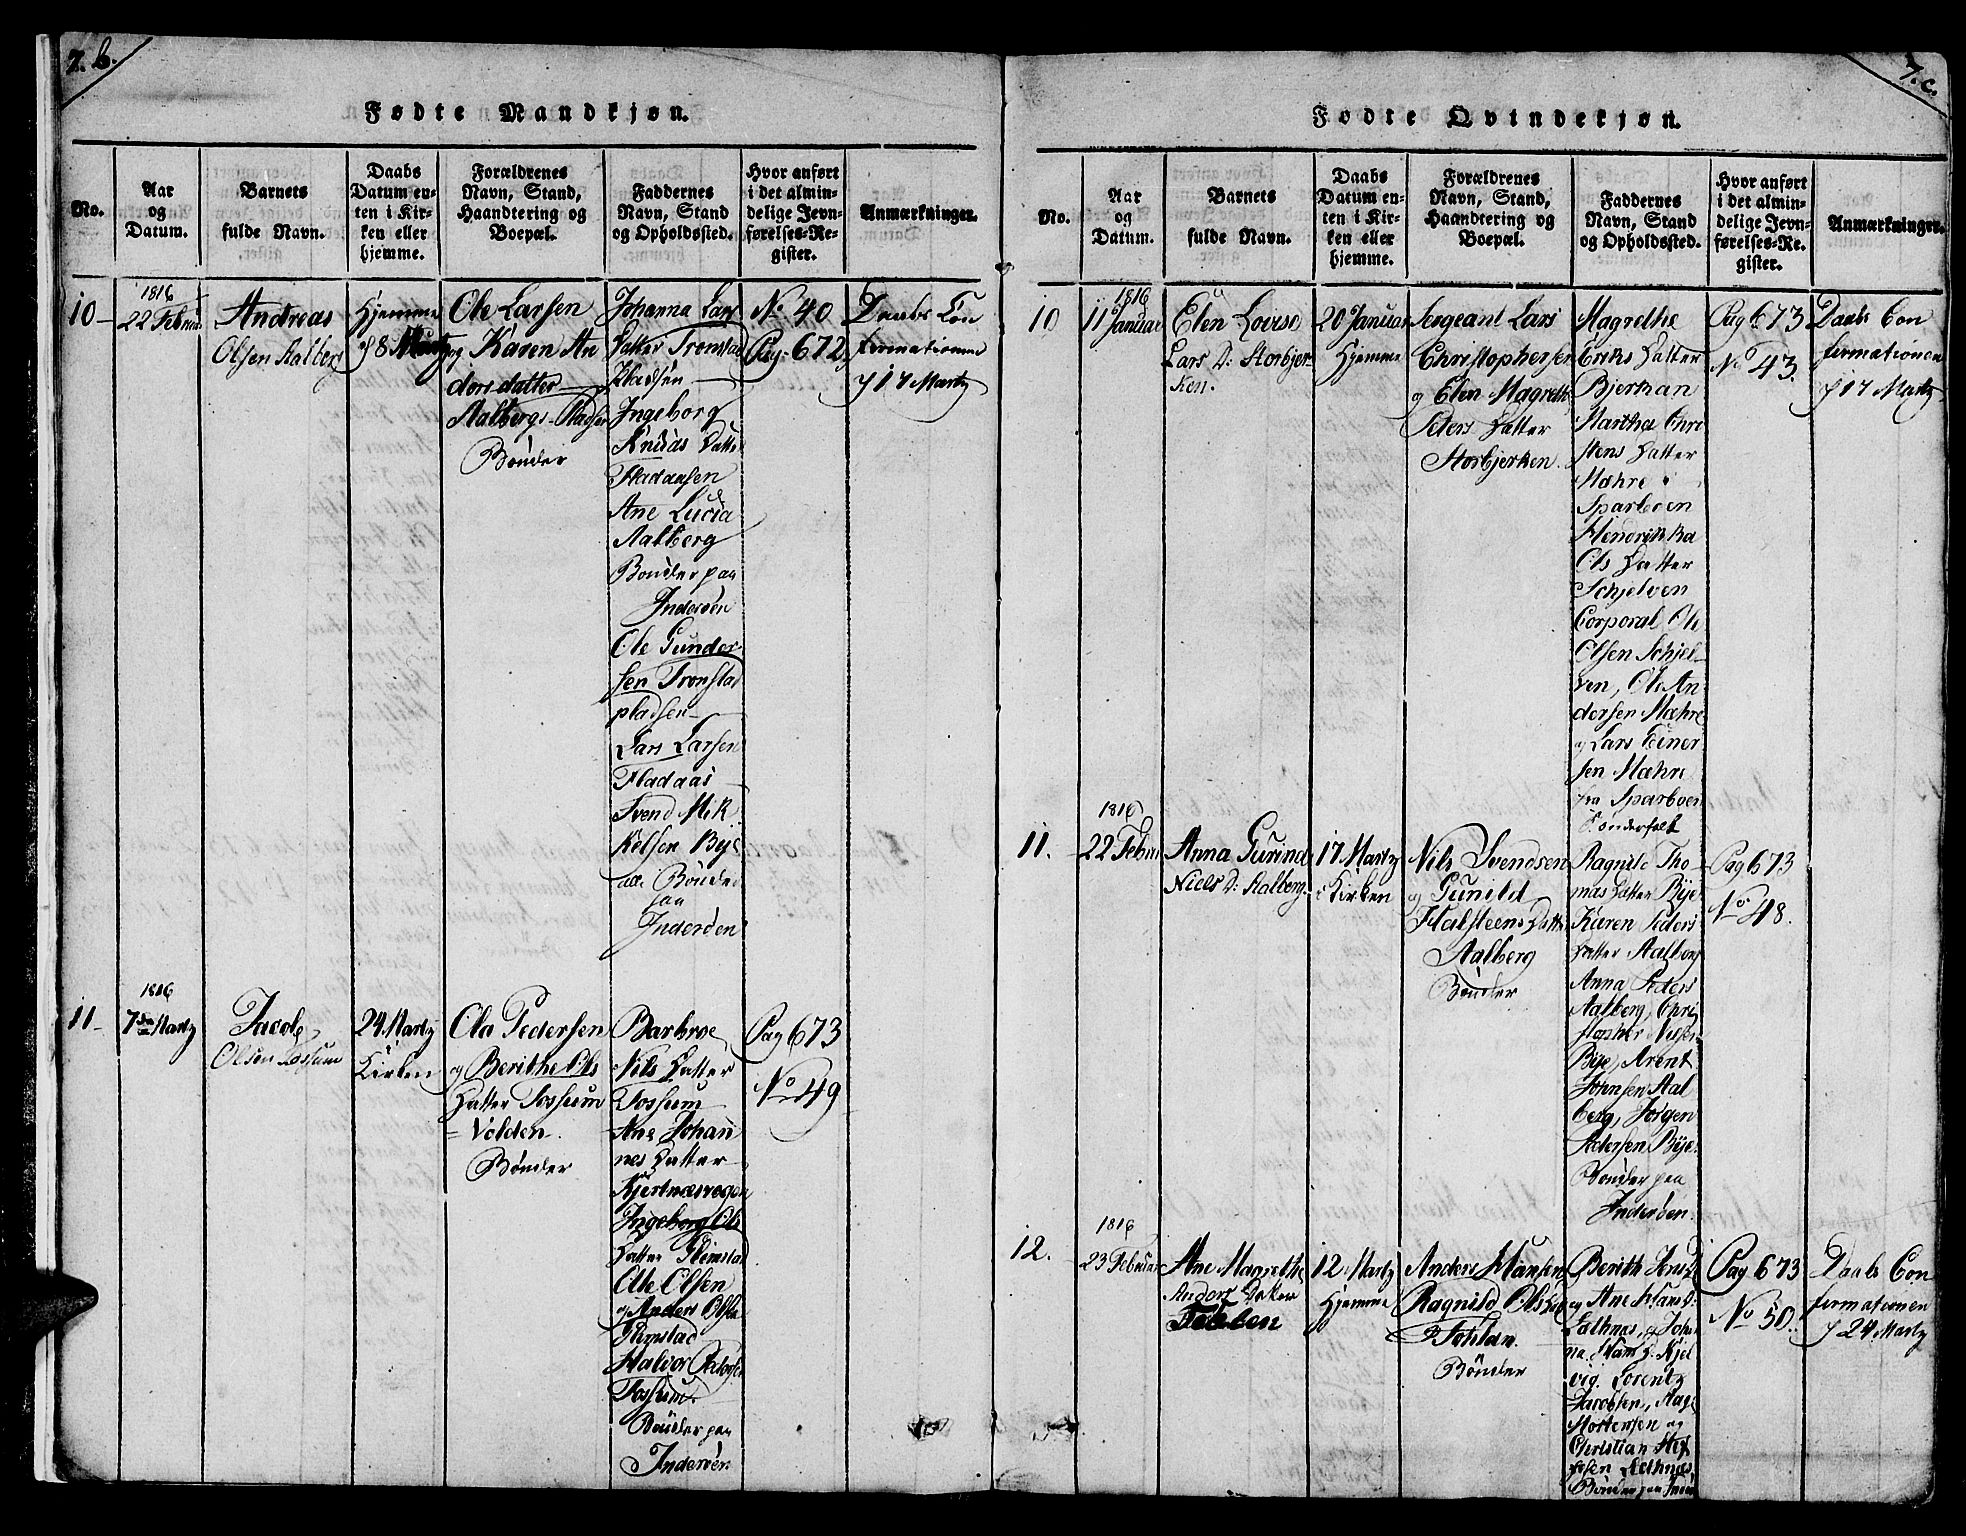 7. b.
Fødte Mandkjøn.
No.
Aar
og
Datum.
Barnets
fulde Navn.
Daabs
Datum en-
ten i Kir-
ken eller
hjemme.
Forældrenes
Navn, Stand,
Haandtering og
Boepæl.
Faddernes
Navn, Stand
og Opholdssted.
Hvor anført
i det almin-
delige Jevn-
førelses-Re-
gister.
Anmærkninger.
10
1816
22 Februar
Andreas
Olsen Aalberg
Hjemme
8 Martz
Ole Larsen
og Karen An
dors datter
Aalbergs-Pladsen
Bønder
Johanna Lars
Datter Tronstad
Pladsen
Ingeborg
Knuds Datter
Fladaasen
Ane Lucia
Aalberg
Bønder paa
Inderøen
Ole Gunder
sen Tronstad
pladsen
Lars Larsen
Fladaas
Svend Mik
kelsen Bye
alle Bønder
paa
Inderøen
No 40
Pag. 672
Daabs Con
firmationen
17 Martz
11
1816
7de Martz
Jacob
Olsen Tossum
24 Martz
Kirken
Ola Pedersen
og Berithe Ols
Datter Tossum
Volden
Bønder
Barbroe
Nils Datter
Tossum
Ane Johan
nes Datter
Kjertnæsvegen
Ingeborg Ols
Datter Flemstad
Ole Olsen
og Anders Olsen
Flemstad
Halvor Pedersen
Tossum
Bønder paa
Inderøen
Pag 673
No 49
7. c.
Fødte Qvindekjøn.
No.
Aar
og
Datum.
Barnets
fulde Navn.
Daabs
Datum en-
ten i Kir-
ken eller
hjemme.
Forældrenes
Navn, Stand,
Haandtering og
Boepæl.
Faddernes
Navn, Stand
og Opholdssted.
Hvor anført
i det almin-
delige Jevn-
førelses-Re-
gister.
Anmærkninger.
10
1816
11 Januar
Elen Lovise
Lars D: Storbjer
ken.
20 Januar
Hjemme
Sergeant Lars
Christophersen
og Elen Magrethe
Peders Datter
Storbjerken.
Magrethe
Eriks Datter
Bjerkan
Martha Chri
stens Datter
Mæhre i
Sparboen
Hendrikka
Ols Datter
Schjelven
Corporal Ole
Olsen Schjel-
ven, Ole An
dersen Mæhre
og Lars Einer
sen Mæhre
fra Sparboen
Bønderfolk
Pag 673
No 43.
Daabs Con
firmationen
17 Martz
11.
1816
22 Febru
Anna Gurina
Niels D: Aalberg
17 Martz
i Kirken
Nils Svendsen
og Gunild
Halsteens Datter
Aalberg
Bønder
Ragnile Tho
mas Datter Bye
Karen Peders
Datter Aalberg
Anna Peders
Aalberg, Chri
stopher Nilsen
Bye, Arent
Johnsen Aal
berg, Jørgen
Pedersen Bye
Bønder paa
Inderøen.
Pag 673
No 48.
12.
1816
23 Februar
Ane Magrethe
Anders Datter
12 Martz
Hjemme
Anders Hansen
Ragnild Ols Dat
Følstan
Bønder
Berith Jens D:
og Ane Hans D:
Lethnæs, og Johan
na Hans D. Kjel
vig. Lorentz
Jacobsen, Aage
Mortensen og
Christian Stef
fesen Lethnæs
Bønder paa Inderø
Pag 673
No 50.
Daabs Con
firmationen
24 Martz